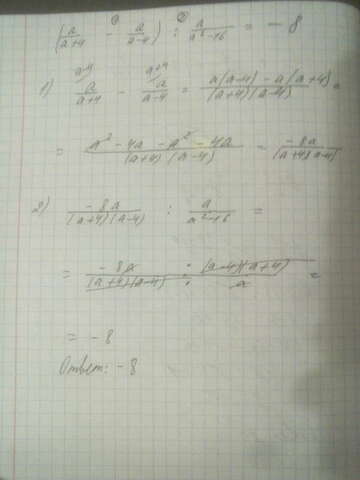 ① ②
(a/(a+4) - a/(a-4)) : a/(a²-16) = -8
1) a/(a+4) - a/(a-4) = (a(a-4) - a(a+4))/((a+4)(a-4)) =
= (a² - 4a - a² - 4a)/((a+4)(a-4)) = -8a/((a+4)(a-4))
2) -8a/((a+4)(a-4)) : a/(a²-16) =
= -8a/((a+4)(a-4)) : ((a-4)(a+4))/a =
= -8
Ответ: -8